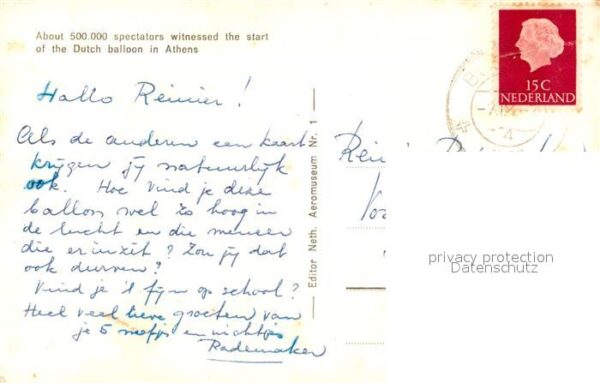 About 500.000 spectators witnessed the start
of the Dutch balloon in Athens
Hallo Reinier!
Als de anderen een kaart
krijgen jij natuurlijk
ook. Hoe vind je deze
ballon wel zo hoog in
de lucht en die mensen
die er in zit? Zou jij dat
ook durven?
Vind je 't fijn op school?
Heel veel lieve groeten van
je 5 neefjes en nichtjes
Rademaker
Editor Neth. Aeromuseum Nr. 1
15 C
NEDERLAND
privacy protection
Datenschutz